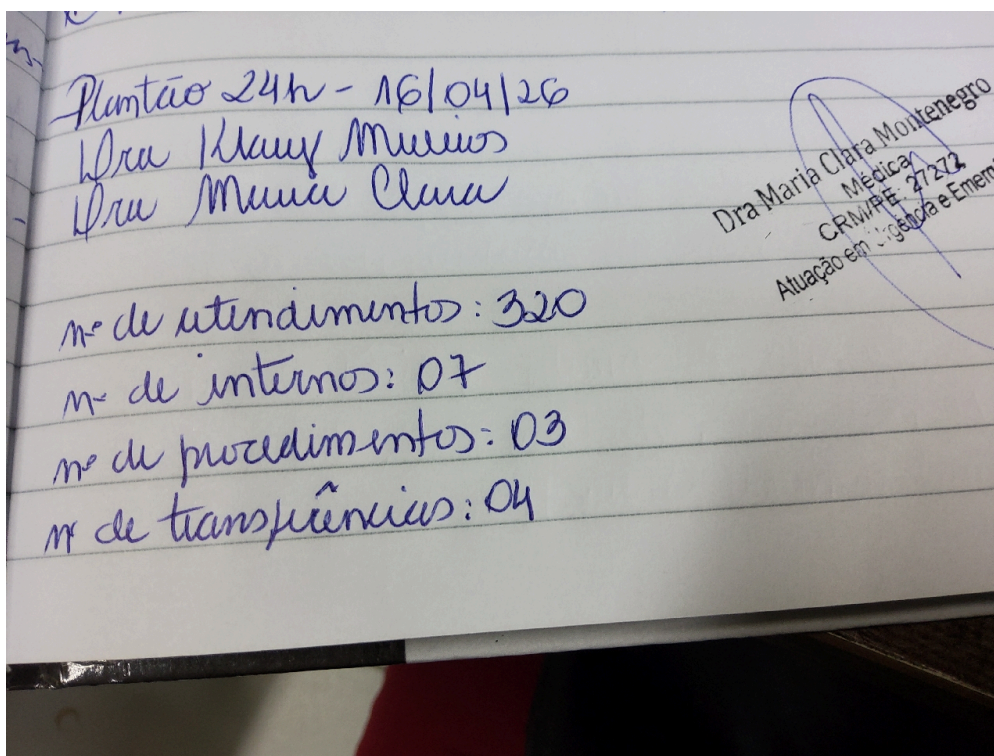 Plantão 24h - 16/04/26
Dra Klauf Municos
Dra Maria Clara
Dra Maria Clara Montenegro
Médica
CRM/PE: 27272
Atuação em Urgência e Emer
nº de atendimentos: 320
nº de internos: 07
nº de procedimentos: 03
nº de transferências: 04